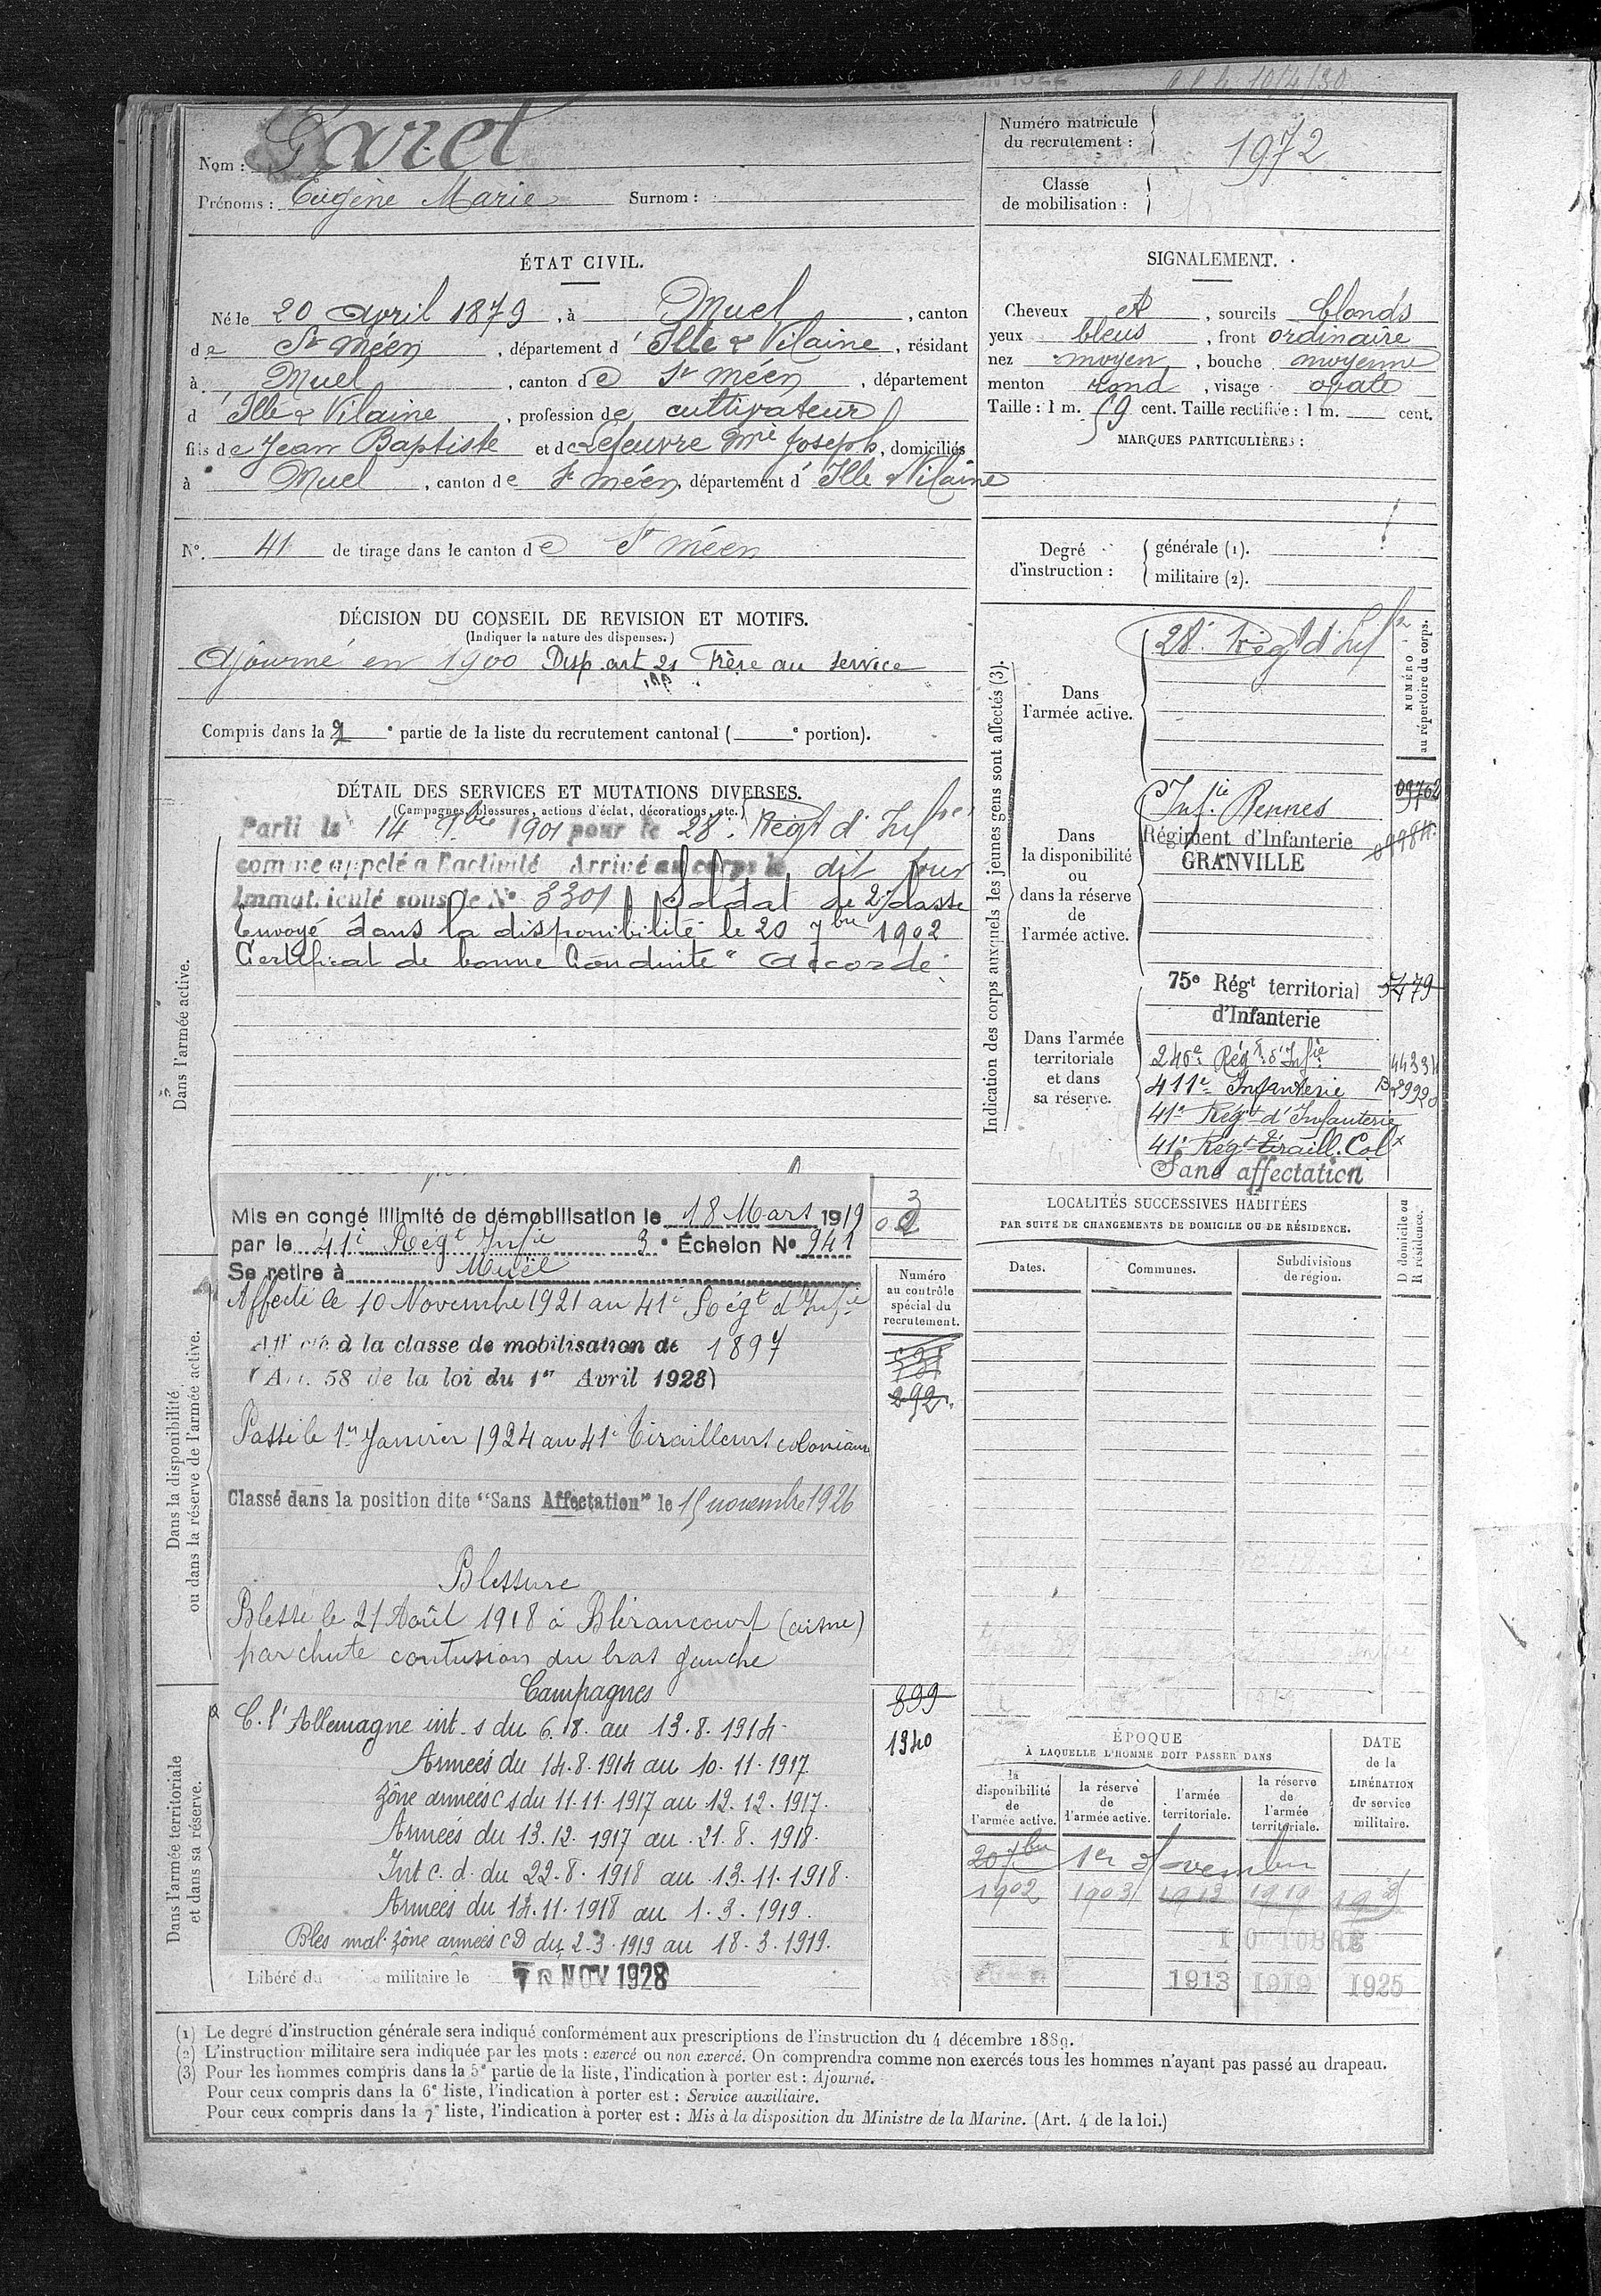 Nom : Garel
Prénoms : Eugène Marie Surnom :
Numéro matricule
du recrutement : 1972
Classe
de mobilisation :
ÉTAT CIVIL.
Né le 20 Avril 1879, à Muel, canton
de St Méen, département d'Ille & Vilaine, résidant
à Muel, canton de St Méen, département
d'Ille & Vilaine, profession de cultivateur
fils de Jean Baptiste et de Lefeuvre Mie Joseph, domiciliés
à Muel, canton de St Méen, département d'Ille & Vilaine
N° 41 de tirage dans le canton de St Méen
SIGNALEMENT.
Cheveux et, sourcils blonds
yeux bleus, front ordinaire
nez moyen, bouche moyenne
menton rond, visage ovale
Taille : 1 m. 59 cent. Taille rectifiée : 1 m. cent.
MARQUES PARTICULIÈRES :
Degré
d'instruction :
générale (1).
militaire (2).
DÉCISION DU CONSEIL DE REVISION ET MOTIFS.
(Indiquer la nature des dispenses.)
Ajourné en 1900 Disp. art 21 Frère au service
Compris dans la 2e partie de la liste du recrutement cantonal ( e portion).
DÉTAIL DES SERVICES ET MUTATIONS DIVERSES.
(Campagnes, blessures, actions d'éclat, décorations, etc.)
Dans l'armée active.
Parti le 14 9bre 1901 pour le 28e Régt d'Infie
comme appelé à l'activité Arrivé au corps le dit jour
Immatriculé sous le N° 3301 Soldat de 2e classe
Envoyé dans la disponibilité le 20 7bre 1902
Certificat de bonne Conduite "Accordé"
Indication des corps auxquels les jeunes gens sont affectés (3).
NUMÉRO
au répertoire du corps.
Dans
l'armée active.
28e Régt d'Infie
Dans
la disponibilité
ou
dans la réserve
de
l'armée active.
Infie Rennes 09762
Régiment d'Infanterie
GRANVILLE
Dans l'armée
territoriale
et dans
sa réserve.
75e Régt territorial 5479
d'Infanterie
246e Régt d'Infie
411e Infanterie
41e Régt d'Infanterie
41e Régt Tiraill. Colx
Sans affectation
Dans la disponibilité
ou dans la réserve de l'armée active.
Mis en congé illimité de démobilisation le 18 Mars 1919
par le 41e Régt Infie 3e Échelon N° 941
Se retire à Muel
Affecté le 10 Novembre 1921 au 41e Régt d'Infie
Affecté à la classe de mobilisation de 1897
(Art. 58 de la loi du 1er Avril 1923)
Passé le 1er Janvier 1924 au 41e Tirailleurs coloniaux
Classé dans la position dite "Sans Affectation" le 15 novembre 1926
Numéro
au contrôle
spécial du
recrutement.
292
899
1940
Blessure
Blessé le 21 Août 1918 à Blérancourt (aisne)
par chute contusion du bras gauche
Dans l'armée territoriale
et dans sa réserve.
Campagnes
C. l'Allemagne int. s du 6.8. au 13.8.1914
Armées du 14.8.1914 au 10.11.1917
zône armées c s du 11.11.1917 au 12.12.1917.
Armées du 13.12.1917 au 21.8.1918.
Int c. d. du 22.8.1918 au 13.11.1918.
Armées du 14.11.1918 au 1.3.1919.
Bles mal. zône armées CD du 2.3.1919 au 18.3.1919.
Libéré du militaire le NOV 1928
LOCALITÉS SUCCESSIVES HABITÉES
PAR SUITE DE CHANGEMENTS DE DOMICILE OU DE RÉSIDENCE.
Dates. Communes. Subdivisions
de région.
D domicile ou
R résidence.
ÉPOQUE
À LAQUELLE L'HOMME DOIT PASSER DANS
la
disponibilité
de
l'armée active.
la réserve
de
l'armée active.
l'armée
territoriale.
la réserve
de
l'armée
territoriale.
DATE
de la
LIBÉRATION
du service
militaire.
20 7bre 1er Novembre
1902 1903 1913 1919
OCTOBRE
1913 1919 1925
(1) Le degré d'instruction générale sera indiqué conformément aux prescriptions de l'instruction du 4 décembre 1889.
(2) L'instruction militaire sera indiquée par les mots : exercé ou non exercé. On comprendra comme non exercés tous les hommes n'ayant pas passé au drapeau.
(3) Pour les hommes compris dans la 5e partie de la liste, l'indication à porter est : Ajourné.
Pour ceux compris dans la 6e liste, l'indication à porter est : Service auxiliaire.
Pour ceux compris dans la 7e liste, l'indication à porter est : Mis à la disposition du Ministre de la Marine. (Art. 4 de la loi.)